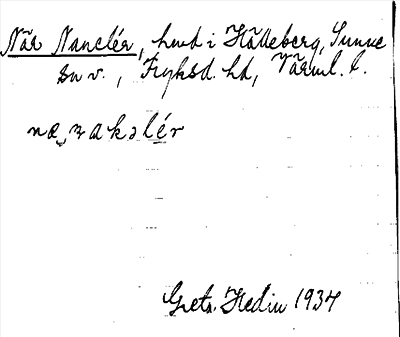 När Nanclér, hmd i Hålleberg, Sunne
sn v., Fryksd. hd, Värml. l.
Grets. Hedin 1937